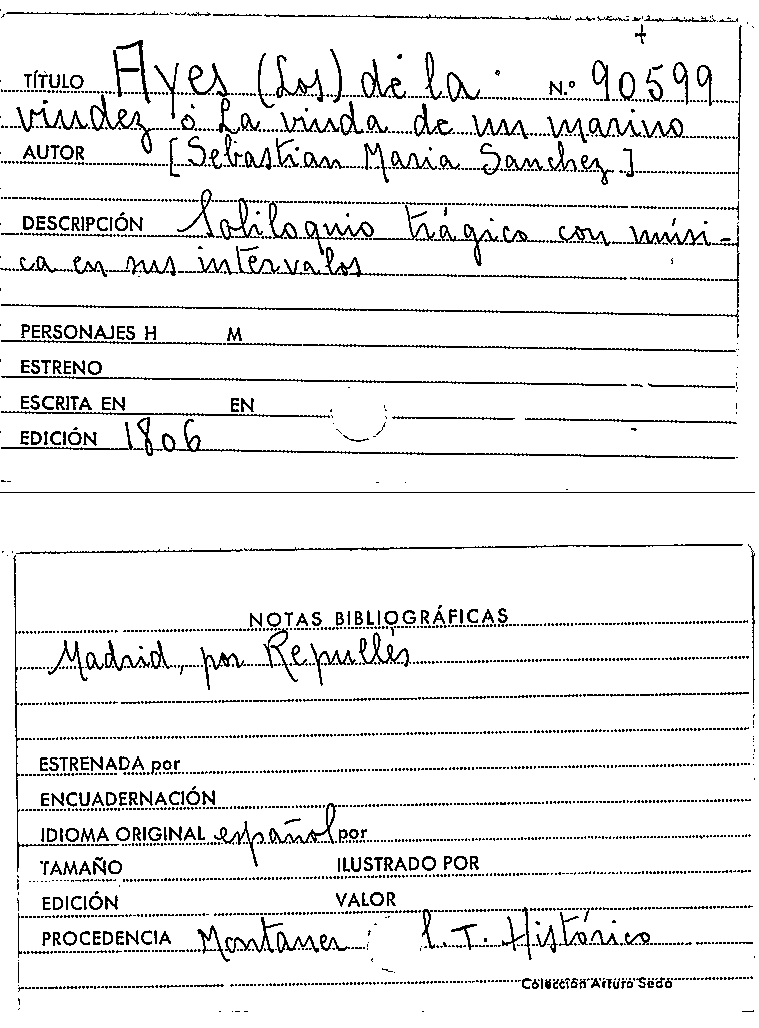 +
TÍTULO Ayes (Los) de la N.º 90599
viudez ó La viuda de un marino
AUTOR [Sebastian Maria Sanchez]
DESCRIPCIÓN Soliloquio trágico con músi-
ca en sus intervalos
PERSONAJES H M
ESTRENO
ESCRITA EN EN
EDICIÓN 1806
NOTAS BIBLIOGRÁFICAS
Madrid, por Repullés
ESTRENADA por
ENCUADERNACIÓN
IDIOMA ORIGINAL español por
TAMAÑO ILUSTRADO POR
EDICIÓN VALOR
PROCEDENCIA Montaner l. T. Histórico
Colección Arturo Sedó